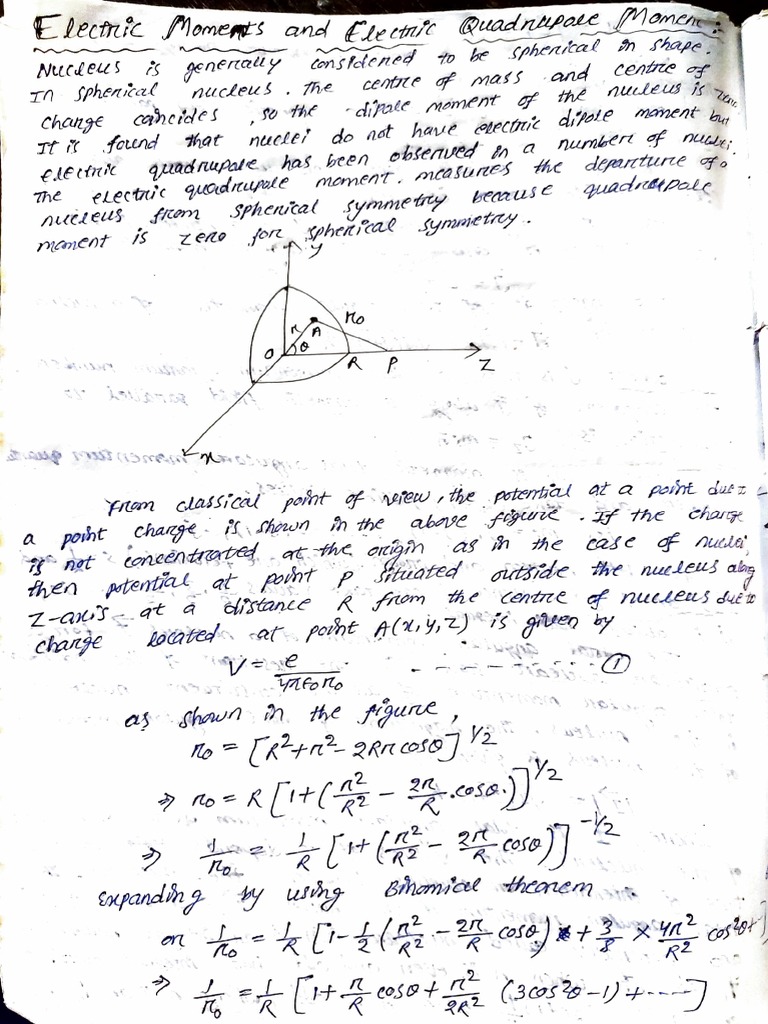 Electric Moments and Electric Quadrupole Moment:
Nucleus is generally considered to be spherical in shape.
In spherical nucleus. The centre of mass and centre of
charge coincides, so the dipole moment of the nucleus is zero
It is found that nuclei do not have electric dipole moment but
electric quadrupole has been observed in a number of nuclei.
The electric quadrupole moment. measures the departure of a
nucleus from spherical symmetry because quadrupole
moment is zero for spherical symmetry.
y
r
A
r₀
O
θ
R
P
Z
x
From classical point of view, the potential at a point due to
a point charge is shown in the above figure. If the charge
is not concentrated at the origin as in the case of nuclei,
then potential at point P situated outside the nucleus along
Z-axis at a distance R from the centre of nucleus due to
charge located at point A(x,y,z) is given by
V = e/4πε₀r₀ - - - - - - - ①
as shown in the figure,
r₀ = [R²+r²-2Rr cosθ]^1/2
⇒ r₀ = R[1+(r²/R² - 2r/R .cosθ.)]^1/2
⇒ 1/r₀ = 1/R [1+(r²/R² - 2r/R cosθ)]^-1/2
Expanding by using Binomial theorem
or 1/r₀ = 1/R [1-1/2(r²/R² - 2r/R cosθ) + 3/8 × 4r²/R² cos²θ+
⇒ 1/r₀ = 1/R [1+ r/R cosθ + r²/2R² (3cos²θ-1) + ----]